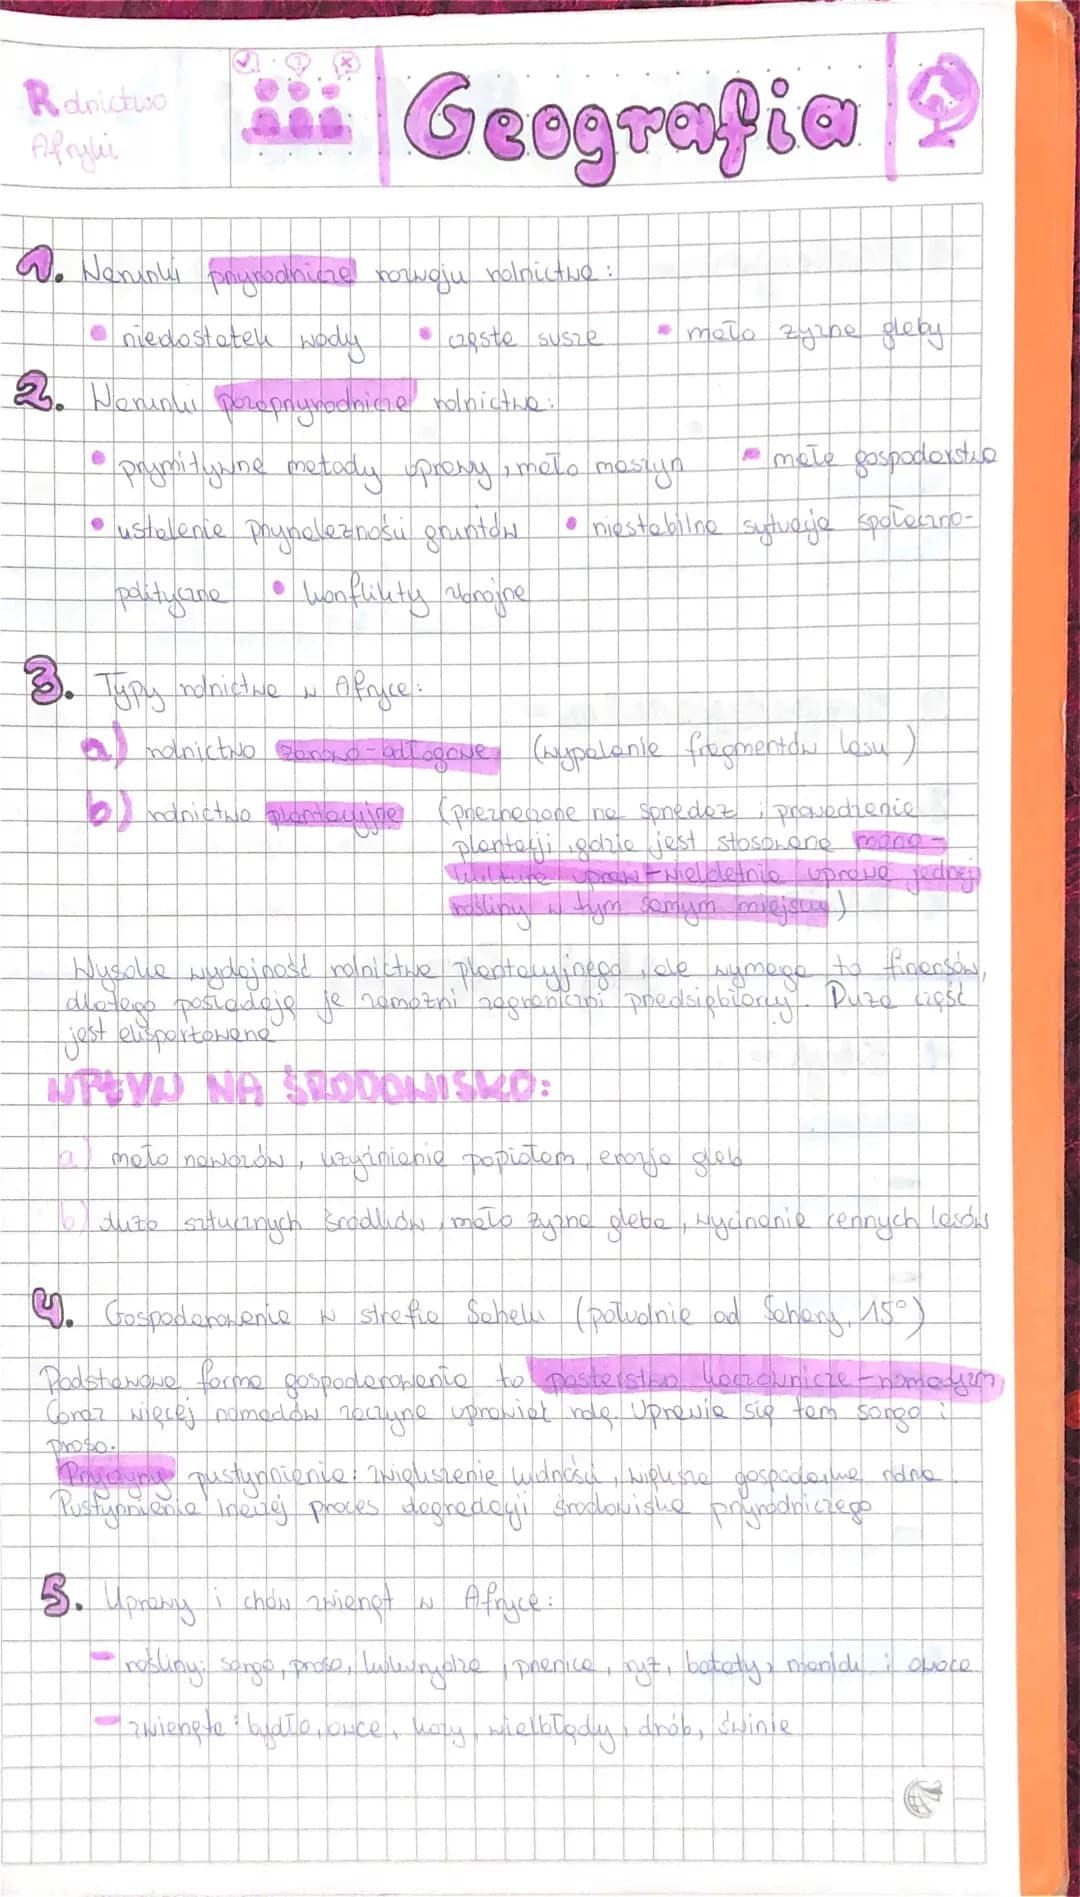 Rolnictwo
Afryki
Geografia
1. Warunki przyrodnicze rozwoju rolnictwa:
• niedostatek wody • częste susze • mało żyzne gleby
2. Warunki pozaprzyrodnicze rolnictwa:
• prymitywne metody uprawy, mało maszyn • małe gospodarstwa
• ustalenie przynależności gruntów • niestabilna sytuacja społeczno-
polityczna • konflikty zbrojne
3. Typy rolnictwa w Afryce:
a) rolnictwo żarowo-odłogowe (wypalanie fragmentów lasu)
b) rolnictwo plantacyjne (przeznaczone na sprzedaż i prowadzenie
plantacji, gdzie jest stosowana mono-
kultura upraw - wieloletnia uprawa jednej
rośliny w tym samym miejscu)
Wysoka wydajność rolnictwa plantacyjnego, ale wymaga to finansów,
dlatego posiadają je zamożni zagraniczni przedsiębiorcy. Duża część
jest eksportowana
WPŁYW NA ŚRODOWISKO:
a) mało nawozów, użyźnianie popiołem, erozja gleb
b) dużo sztucznych środków, mało żyzna gleba, wycinanie cennych lasów
4. Gospodarowanie w strefie Sahelu (południe od Sahary, 15°)
Podstawową formą gospodarowania to pasterstwo koczownicze - nomadyzm
Coraz więcej nomadów zaczyna uprawiać rolę. Uprawia się tam sorgo i
proso.
Przyczyny pustynnienia: zwiększenie ludności, większa gospodarka rolna.
Pustynnienie inaczej proces degradacji środowiska przyrodniczego
5. Uprawy i chów zwierząt w Afryce:
- rośliny: sorgo, proso, kukurydza, pszenica, ryż, bataty, maniok i owoce
- zwierzęta: bydło, owce, kozy, wielbłądy, drób, świnie